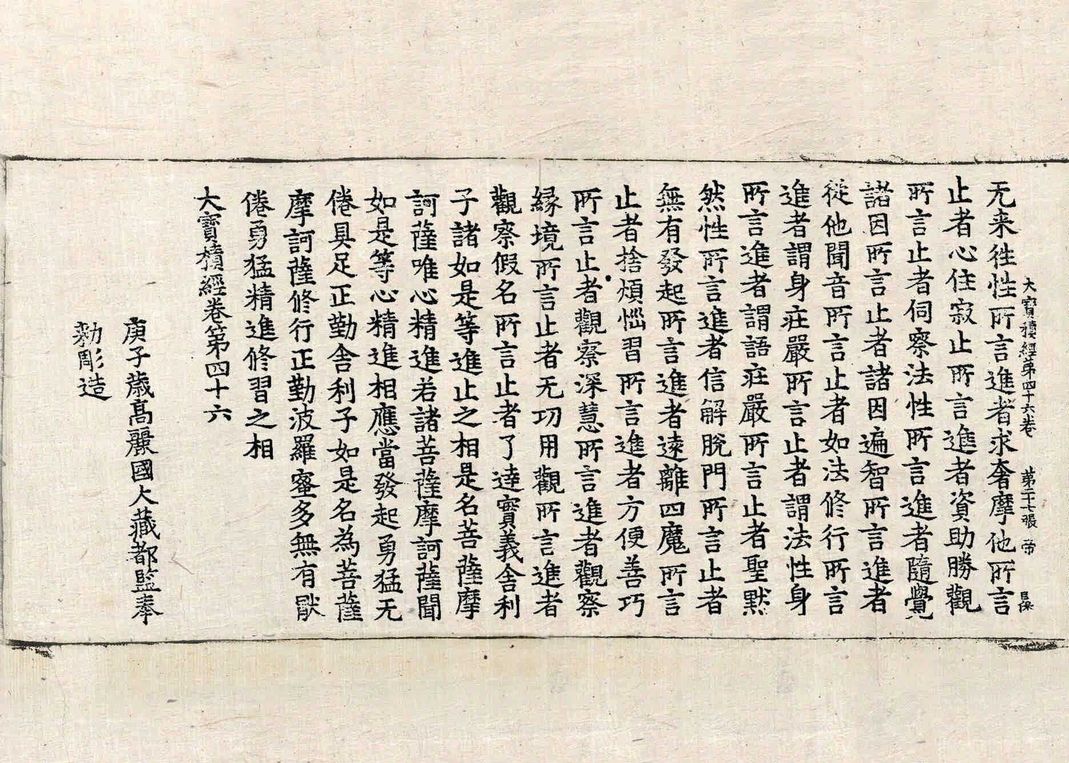 大寶積經第四十六卷 第二十七張 帝
无来往性所言進者求奢摩他所言
止者心住寂止所言進者資助勝觀
所言止者伺察法性所言進者隨覺
諸因所言止者諸因遍智所言進者
從他聞音所言止者如法修行所言
進者謂身莊嚴所言止者謂法性身
所言進者謂語莊嚴所言止者聖默
然性所言進者信解脫門所言止者
無有發起所言進者遠離四魔所言
止者捨煩惱習所言進者方便善巧
所言止者觀察深慧所言進者觀察
緣境所言止者无功用觀所言進者
觀察假名所言止者了達實義舍利
子諸如是等進止之相是名菩薩摩
訶薩唯心精進若諸菩薩摩訶薩聞
如是等心精進相應當發起勇猛无
倦具足正勤舍利子如是名為菩薩
摩訶薩修行正勤波羅蜜多無有猒
倦勇猛精進修習之相
大寶積經卷第四十六
庚子歲高麗國大藏都監奉
勑彫造